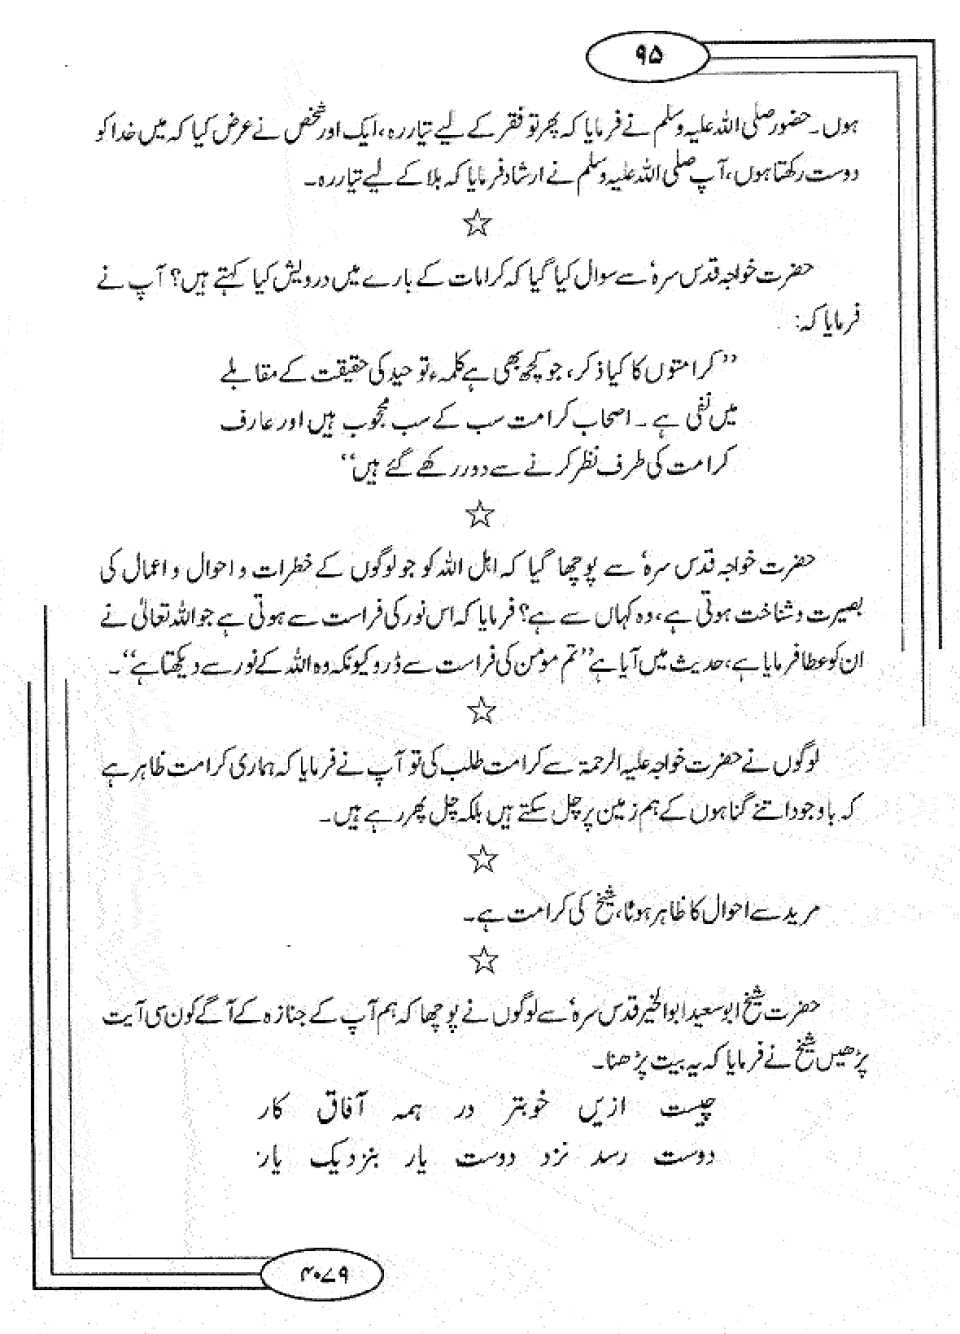 ۹۵
ہوں۔ حضور صلی اللہ علیہ وسلم نے فرمایا کہ پھر تو فقر کے لیے تیار رہ، ایک اور شخص نے عرض کیا کہ میں خدا کو
دوست رکھتا ہوں، آپ صلی اللہ علیہ وسلم نے ارشاد فرمایا کہ بلا کے لیے تیار رہ۔
☆
حضرت خواجہ قدس سرہٗ سے سوال کیا گیا کہ کرامات کے بارے میں درویش کیا کہتے ہیں؟ آپ نے
فرمایا کہ:
”کرامتوں کا کیا ذکر، جو کچھ بھی ہے کلمہء توحید کی حقیقت کے مقابلے
میں نفی ہے۔ اصحاب کرامت سب کے سب مجوب ہیں اور عارف
کرامت کی طرف نظر کرنے سے دور رکھے گئے ہیں“
☆
حضرت خواجہ قدس سرہٗ سے پوچھا گیا کہ اہل اللہ کو جو لوگوں کے خطرات و احوال و اعمال کی
بصیرت و شناخت ہوتی ہے، وہ کہاں سے ہے؟ فرمایا کہ اس نور کی فراست سے ہوتی ہے جو اللہ تعالیٰ نے
ان کو عطا فرمایا ہے، حدیث میں آیا ہے ”تم مومن کی فراست سے ڈرو کیونکہ وہ اللہ کے نور سے دیکھتا ہے“۔
☆
لوگوں نے حضرت خواجہ علیہ الرحمۃ سے کرامت طلب کی تو آپ نے فرمایا کہ ہماری کرامت ظاہر ہے
کہ باوجود اتنے گناہوں کے ہم زمین پر چل سکتے ہیں بلکہ چل پھر رہے ہیں۔
☆
مرید سے احوال کا ظاہر ہونا، شیخ کی کرامت ہے۔
☆
حضرت شیخ ابوسعید ابوالخیر قدس سرہٗ سے لوگوں نے پوچھا کہ ہم آپ کے جنازہ کے آگے کون سی آیت
پڑھیں شیخ نے فرمایا کہ یہ بیت پڑھنا۔
چیست ازیں خوبتر در ہمہ آفاق کار
دوست رسد نزد دوست یار بنزدیک یار
۴۰۷۹